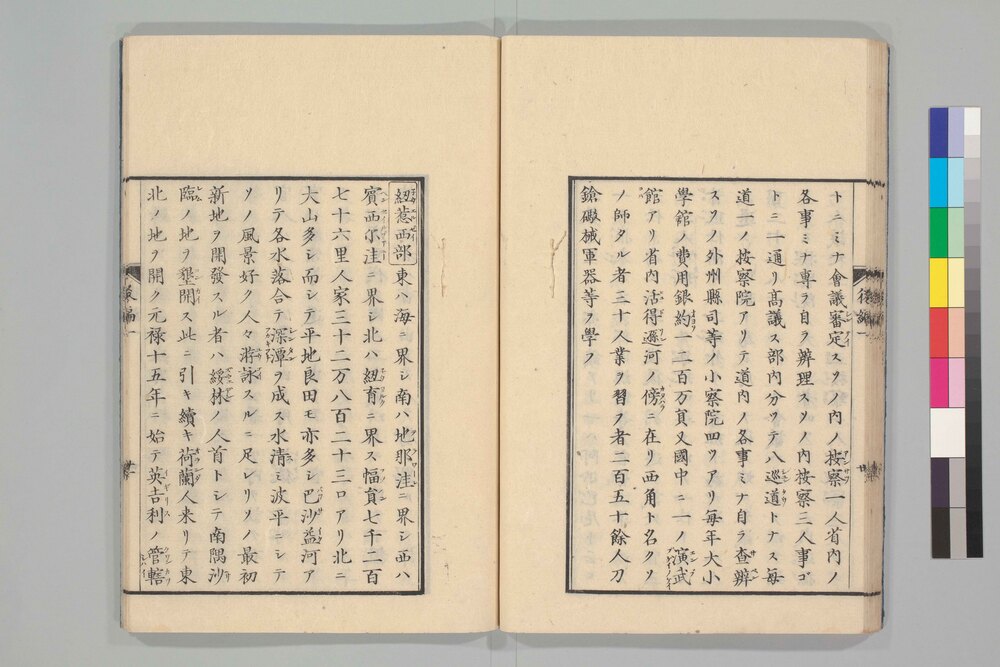 トニミナ會議審定スソノ内ノ按察一人省内ノ
各事ミナ専ラ自ラ辨理スソノ内按察三人事ゴ
トニ一通リ髙議ス部内分ツテ八巡道トナス毎
道一ノ按察院アリテ道内ノ各事ミナ自ラ査辨
スソノ外州縣司等ノ小察院四ツアリ毎年大小
學館ノ費用銀約一二百万員又國中ニ一ノ演武
館アリ省内活得遜河ノ傍ニ在リ西角ト名クソ
ノ師タル者三十人業ヲ習フ者二百五十餘人刀
鎗礮械軍器等ヲ學フ
紐惹西部東ハ海ニ界シ南ハ地那洼ニ界シ西ハ
賓西尓洼ニ界シ北ハ紐育ニ界ス幅員七千二百
七十六里人家三十二万八百二十三口アリ北ニ
大山多シ而シテ平地良田モ亦多シ巴沙益河ア
リテ各水落合テ深潭ヲ成ス水清ミ波平ニシテ
ソノ風景好ク人々游詠スルニ足レリソノ最初
新地ヲ開發スル者ハ綏林ノ人首トシテ南隅沙
臨ノ地ヲ墾開ス此ニ引キ續キ荷蘭人来リテ東
北ノ地ヲ開ク元禄十五年ニ始テ英吉利ノ管轄